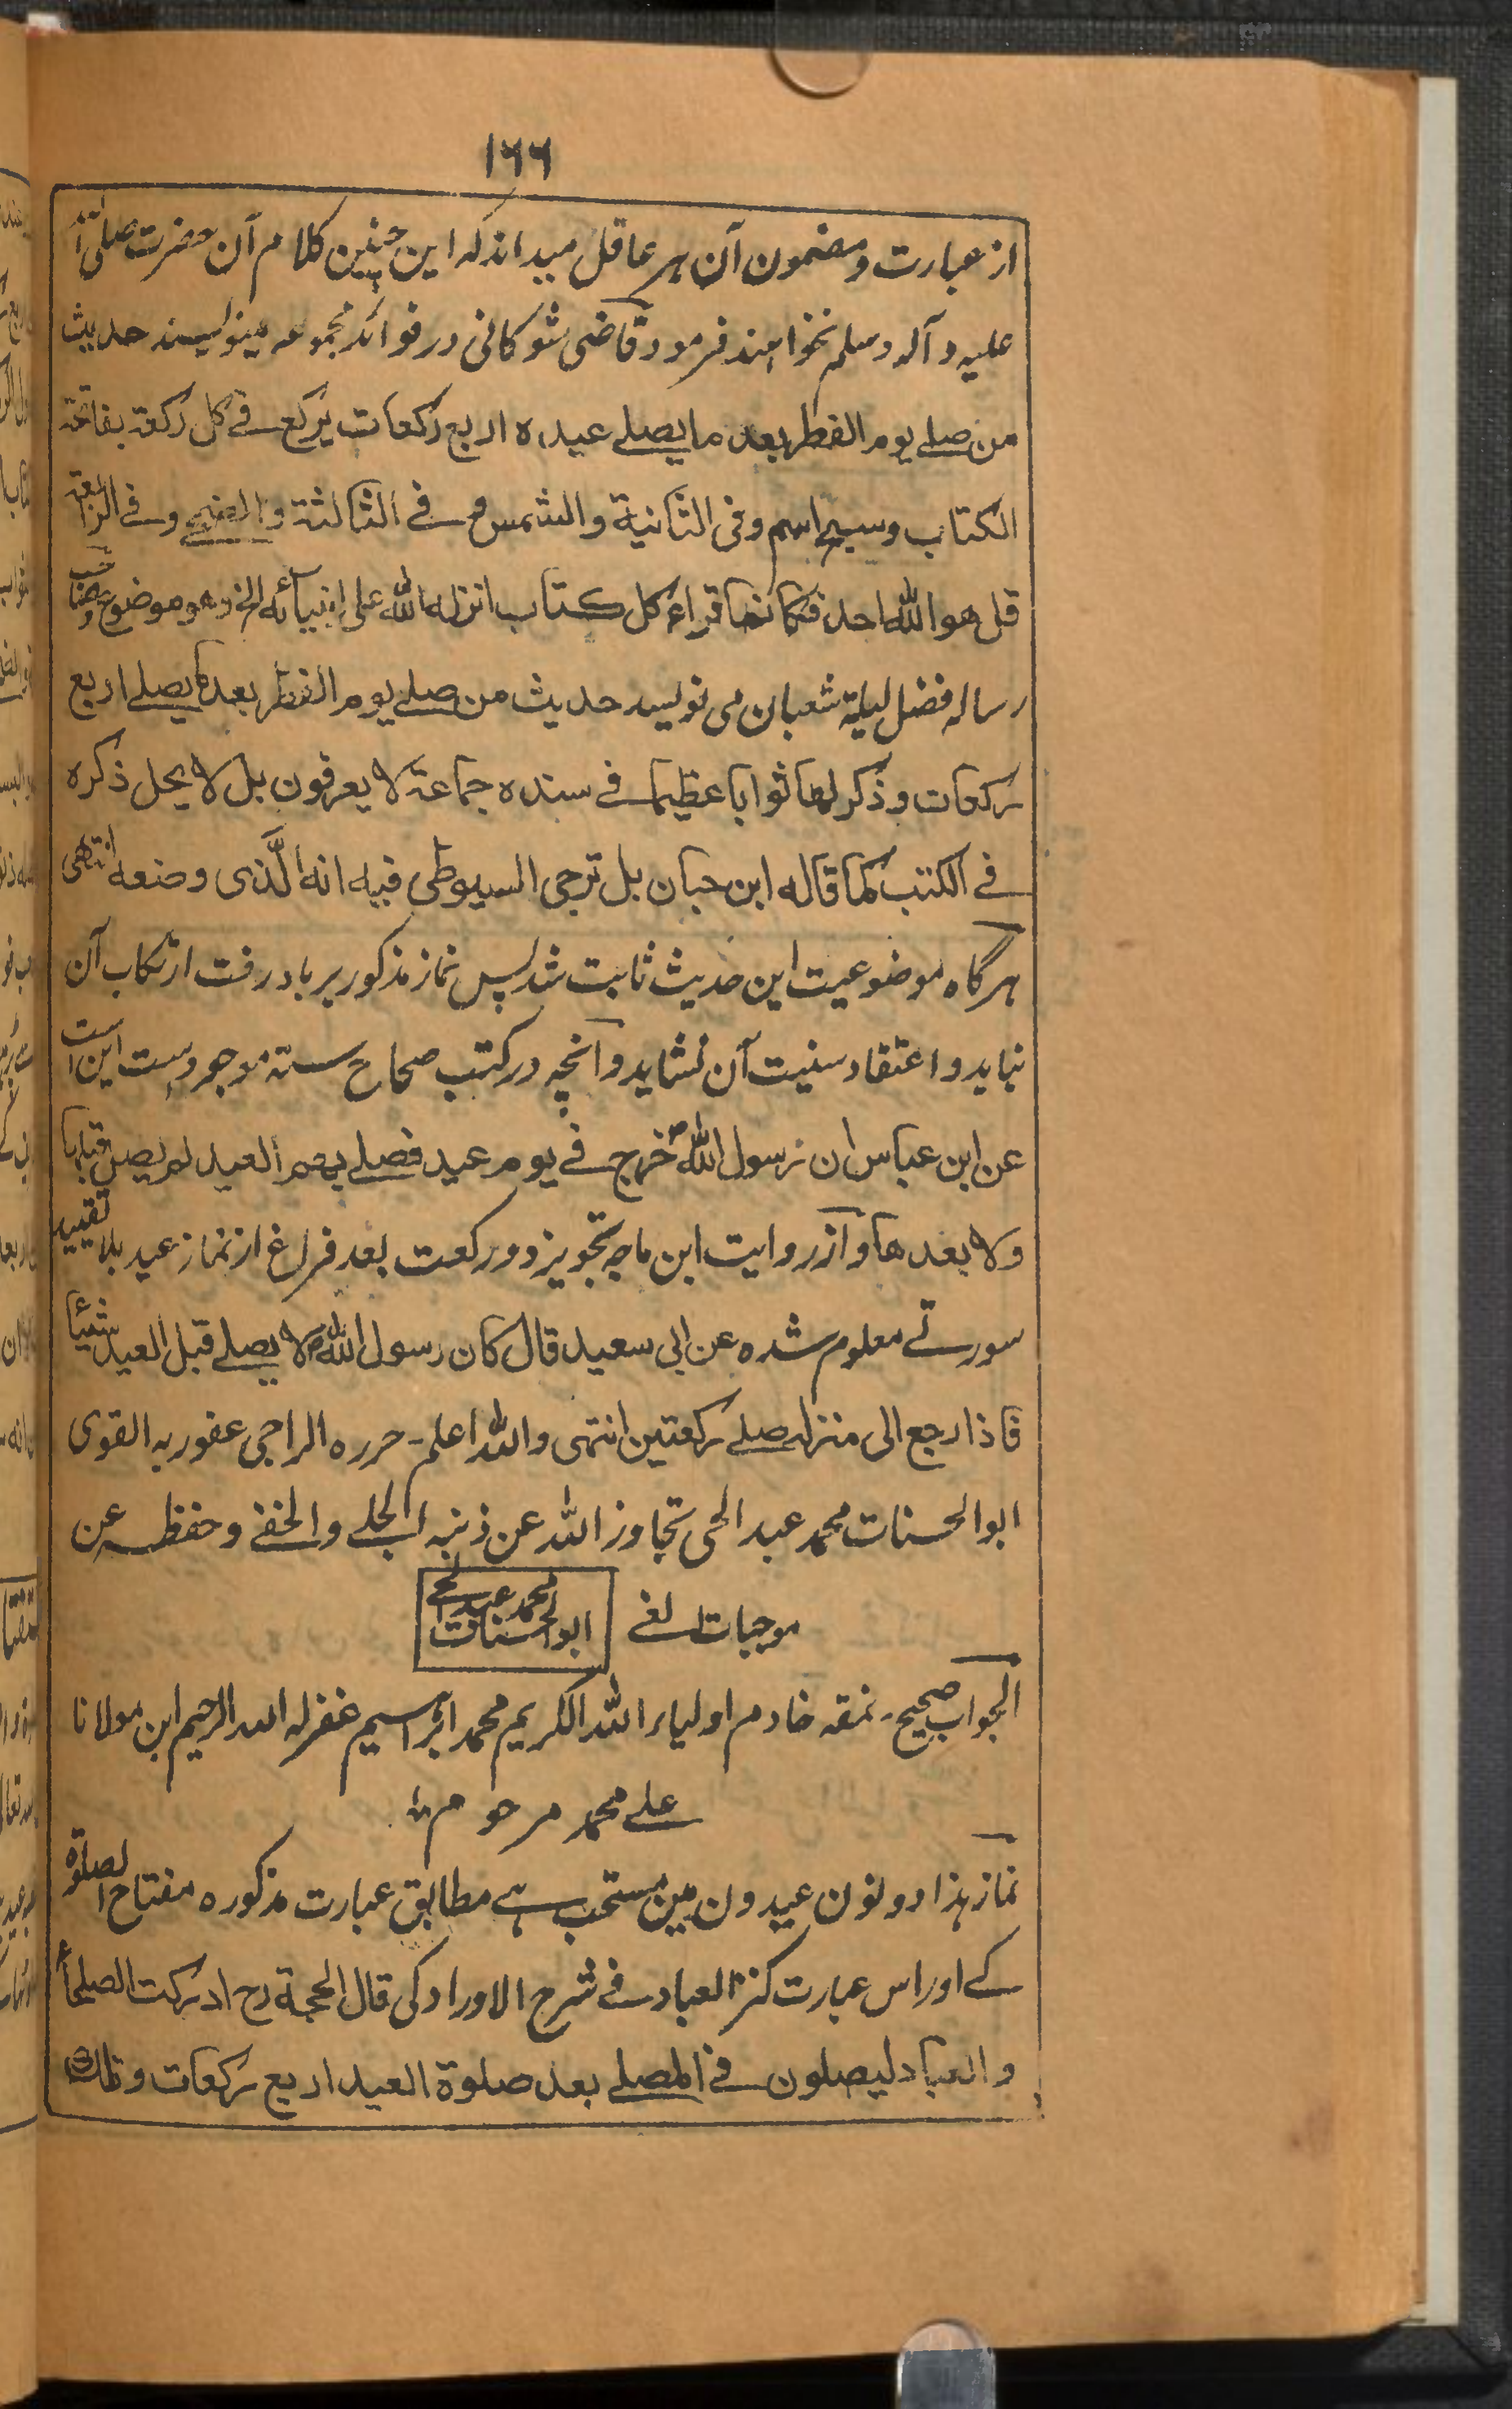 ۱۶۶
از عبارت و مضمون آن ہر عاقل میداند کہ این چنین کلام آن حضرت صلی اللہ
علیہ و آلہ وسلم نخواہند فرمود و قاضی شوکانی در فوائد مجموعہ مینویسند حدیث
من صلے یوم الفطر بعد ما یصلے عیدہ اربع رکعات یرکع فے کل رکعۃ بفاتحۃ
الکتاب وسبح اسم وفی الثانیۃ والشمس و فے الثالثۃ والضحے وفے الرابعۃ
قل هو اللہ احد فکانما قراء کل کتاب انزلہ اللہ علی انبیائہ الخ وهو موضوع
رسالہ فضل لیلۃ شعبان می نویسد حدیث من صلے یوم الفطر بعد ما یصلے اربع
رکعات و ذکر لها ثوابا عظیما فے سندہ جماعۃ لا یعرفون بل لا یحل ذکرہ
فے الکتب کما قالہ ابن حبان بل ترجی السیوطی فیہ انہ الّذی وضعہ انتهی
ہرگاہ موضوعیت این حدیث ثابت شد پس نماز مذکور برباد رفت ارتکاب آن
نباید و اعتقاد سنیت آن نشاید و آنچہ در کتب صحاح ستہ موجودست این است
عن ابن عباس ان رسول اللہ ص خرج فے یوم عید فصلے بهم العید لم یصل قبلها
ولا بعدها و از روایت ابن ماجہ تجویز دو رکعت بعد فراغ از نماز عید بلا تقیید
سورتے معلوم شدہ عن ابی سعید قال کان رسول اللہ ص لا یصلے قبل العید شیئا
فاذا رجع الی منزلہ صلے رکعتین انتہی واللہ اعلم۔ حررہ الراجی عفو ربہ القوی
ابو الحسنات محمد عبد الحی تجاوز اللہ عن ذنبہ الجلے والخفے وحفظہ عن
موجبات الغے محمد عبد الحے ابو الحسنات
الجواب صحیح۔ نمقہ خادم اولیاء اللہ الکریم محمد ابراہیم غفر لہ اللہ الرحیم ابن مولانا
علے محمد مرحوم
نماز ہذا دونون عیدون مین مستحب ہے مطابق عبارت مذکورہ مفتاح الصلوۃ
کے اور اس عبارت کنز العباد فے شرح الاوراد کی قال الحجۃ رح ادرکت الصلحاء
والعباد لیصلون فے المصلے بعد صلوۃ العید اربع رکعات و